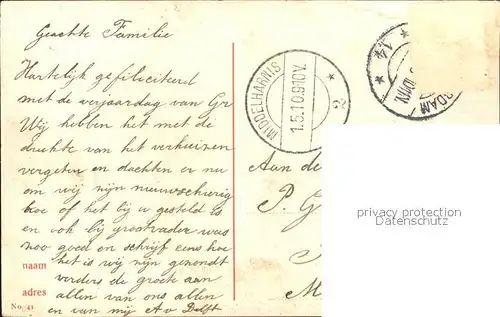 Geachte Familie
Hartelijk gefiliciteerd
met de verjaardag van Gr
Wij hebben het met de
drukte van het verhuizen
vergeten en dachten er nu
om wij zijn nieuwschierig
hoe of het bij u gesteld is
en ook bij grootvader was
noo goed en schrijf eens hoe
het is wij zijn gezondt
verders de groete aan
allen van ons allen
en van mij A v Delft
naam
adres
No. 41
MIDDELHARNIS
1.5.10.9-10V.
2
14
RDAM
Aan de
P. G
M
privacy protection
Datenschutz